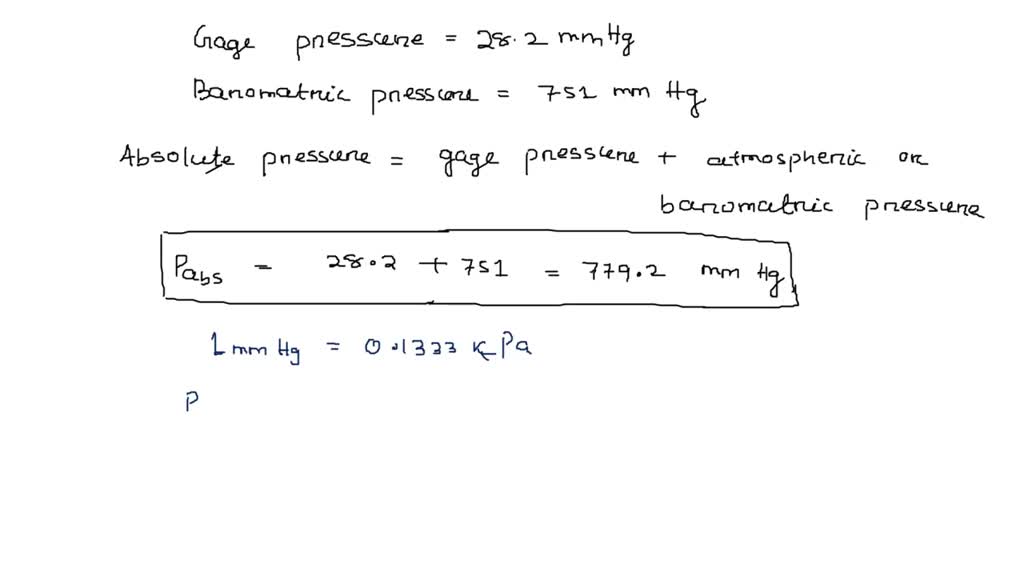 Gage pressure = 28.2 mmHg
Barometric pressure = 751 mm Hg
Absolute pressure = gage pressure + atmospheric or
barometric pressure
Pabs = 28.2 + 751 = 779.2 mm Hg
1 mm Hg = 0.1333 KPa
P